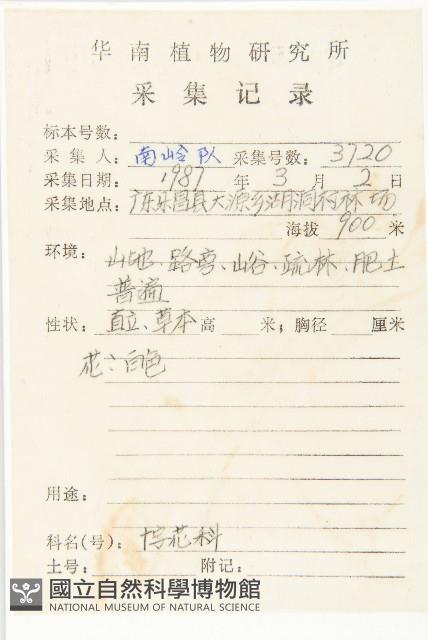 华南植物研究所
采集记录
标本号数：
采集人：南岭队 采集号数：3720
采集日期：1987年3月2日
采集地点：广东乐昌县大源乡湖洞村林场
海拔900米
环境：山地、路旁、山谷、疏林、肥土
普遍
性状：直立、草本高 米；胸径 厘米
花：白色
用途：
科名(号)：十字花科
土号： 附记：
國立自然科學博物館
NATIONAL MUSEUM OF NATURAL SCIENCE